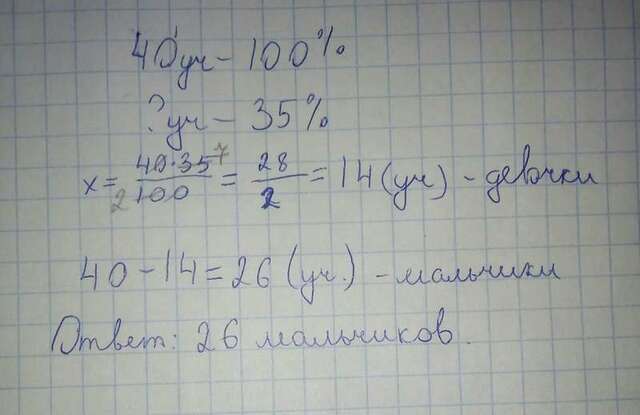 40уч - 100%
?уч - 35%
x = 40·35 7 / 2 100 = 28 / 2 = 14 (уч) - девочки
40 - 14 = 26 (уч.) - мальчики
Ответ: 26 мальчиков.